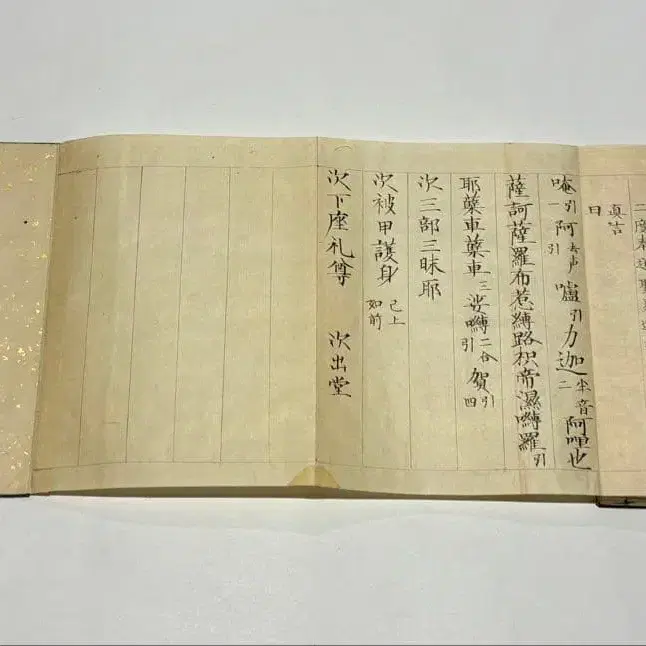 真言
曰
唵引一阿去声引嚧引力迦半音二阿哩也
薩訶薩羅布惹縛路枳帝濕嚩羅引
耶蘖車蘖車三娑嚩二合引賀引四
次三部三昧耶
次被甲護身 已上如前
次下座礼尊 次出堂